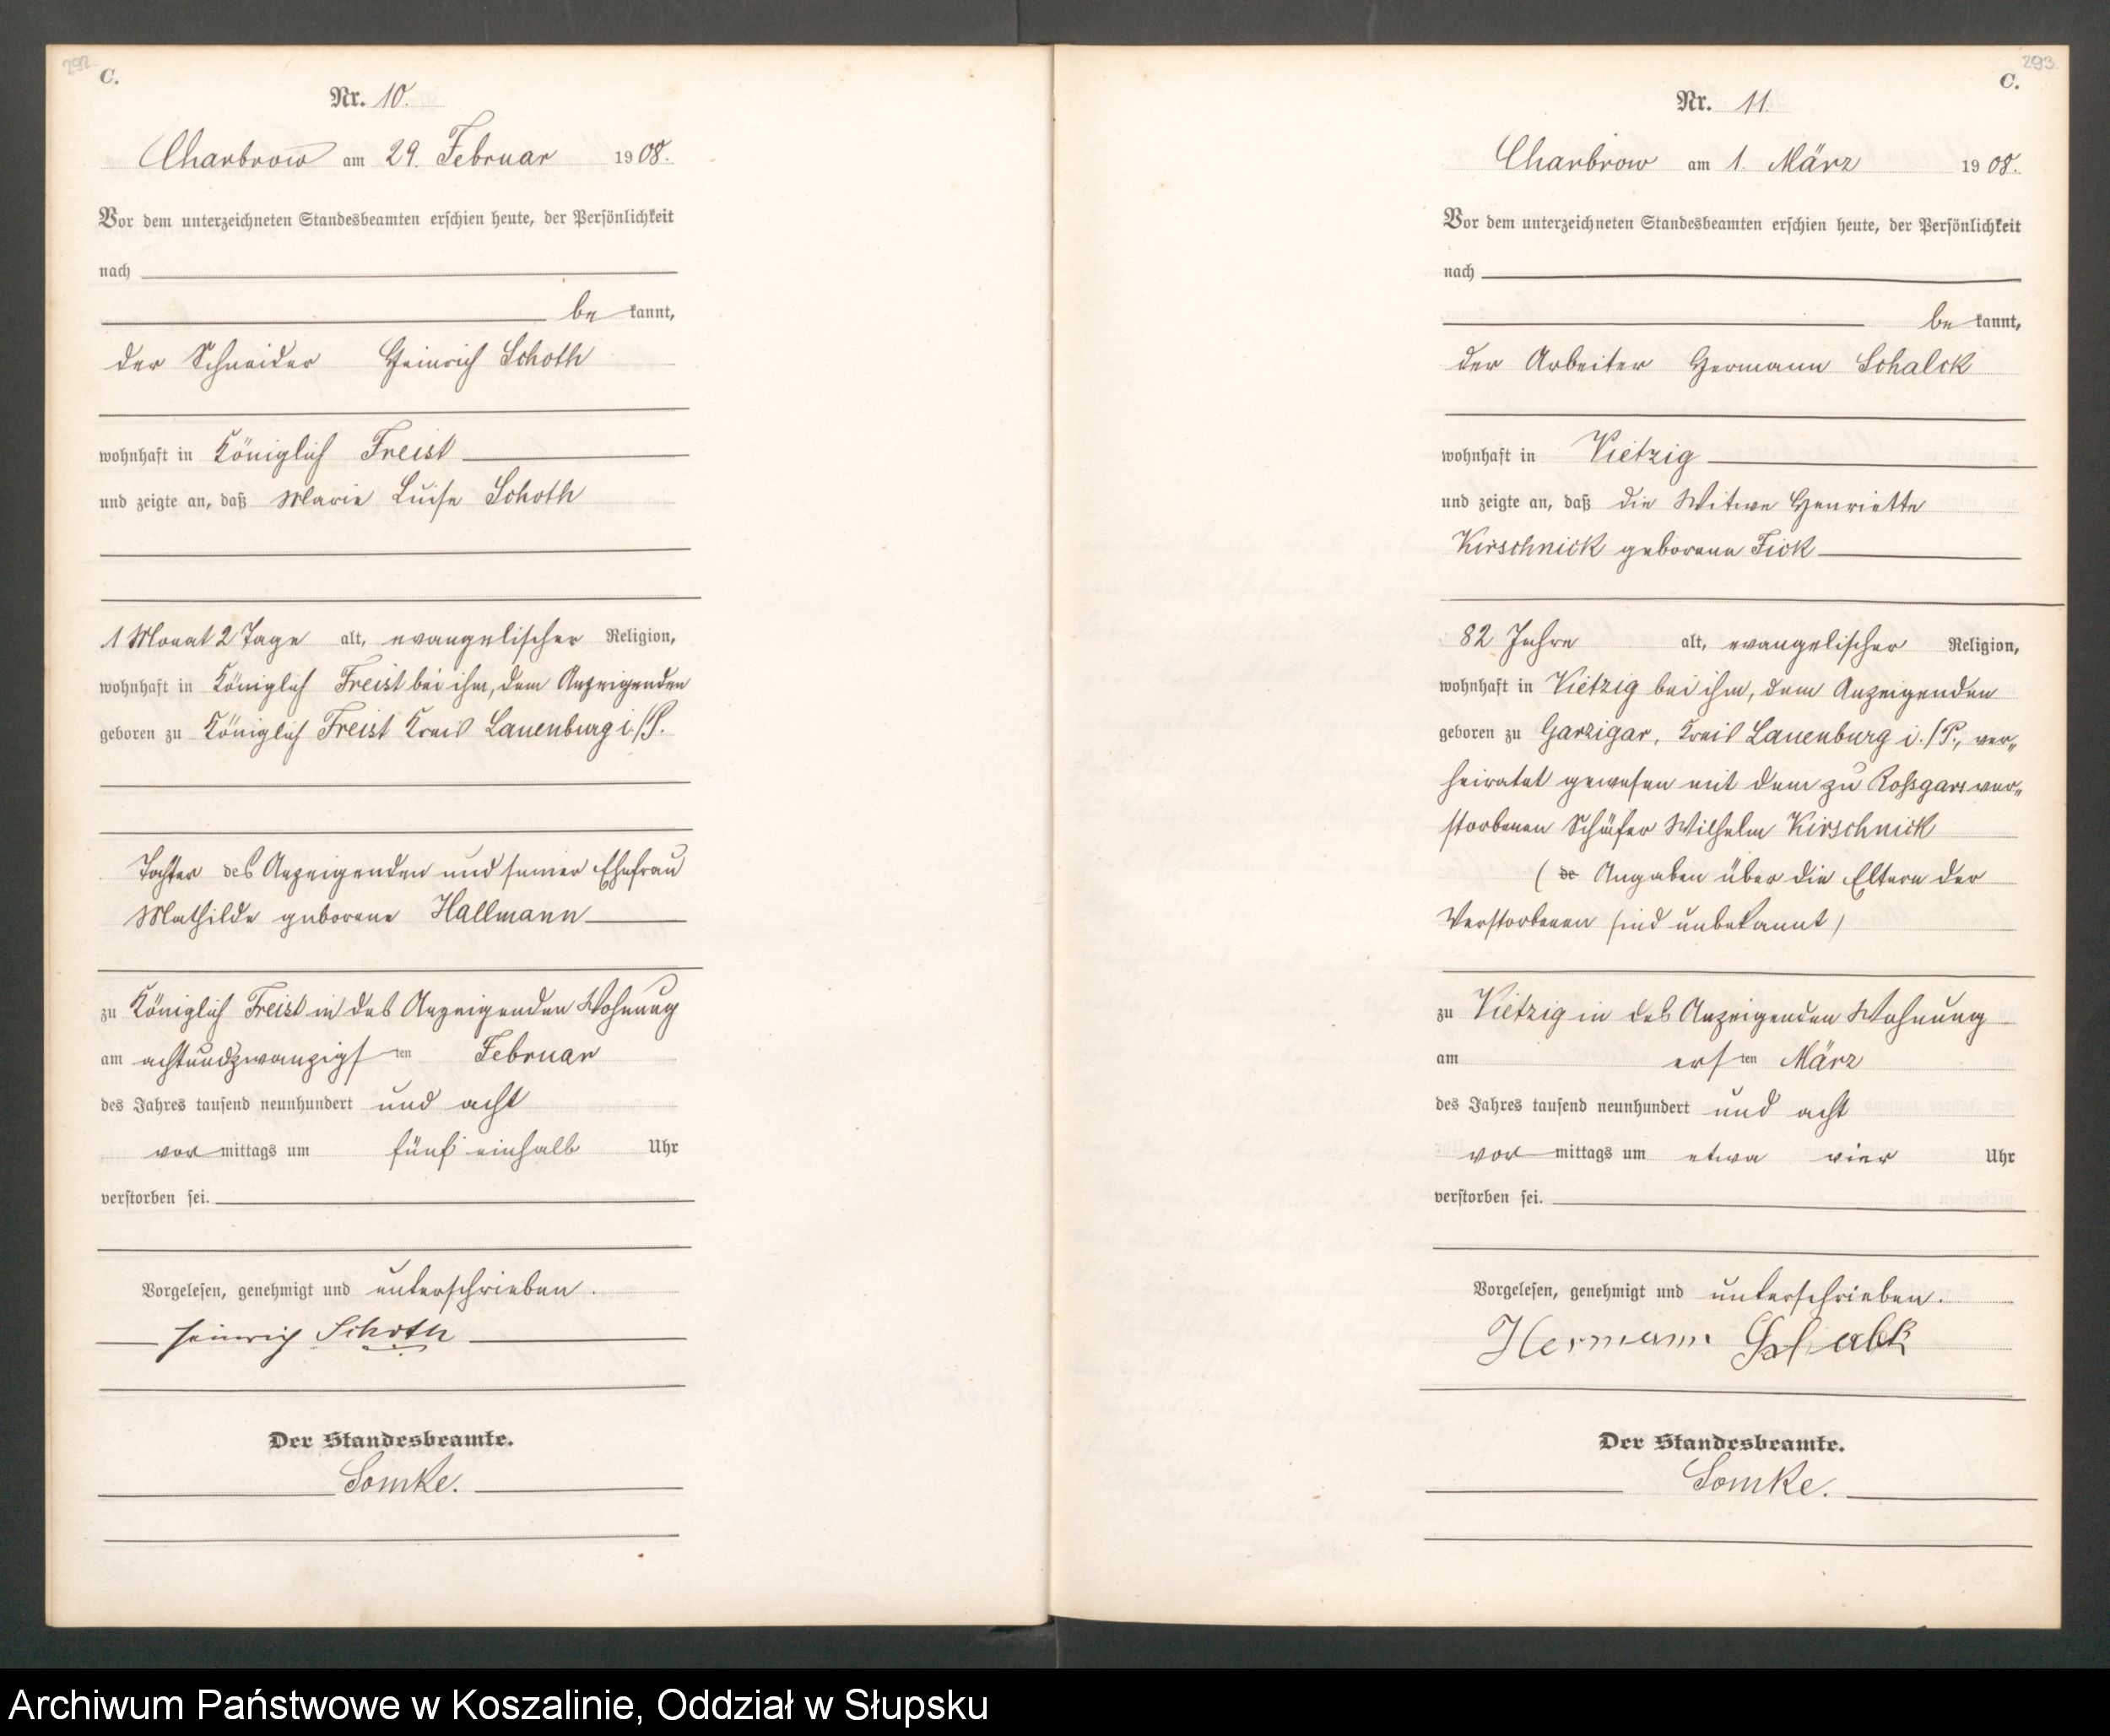 292.
C.
Nr. 10.
Charbrow am 29. Februar 1908.
Vor dem unterzeichneten Standesbeamten erschien heute, der Persönlichkeit
nach
be kannt,
der Schneider Heinrich Schoth
wohnhaft in Königlich Freist
und zeigte an, daß Marie Luise Schoth
1 Monat 2 Tage alt, evangelischer Religion,
wohnhaft in Königlich Freist bei ihm, dem Anzeigenden
geboren zu Königlich Freist Kreis Lauenburg i./P.
Tochter des Anzeigenden und seiner Ehefrau
Mathilde geborene Hallmann
zu Königlich Freist in des Anzeigenden Wohnung
am achtundzwanzigsten Februar
des Jahres tausend neunhundert und acht
vor mittags um fünf einhalb Uhr
verstorben sei.
Vorgelesen, genehmigt und unterschrieben.
Heinrich Schoth
Der Standesbeamte.
Somke.
293.
C.
Nr. 11.
Charbrow am 1. März 1908.
Vor dem unterzeichneten Standesbeamten erschien heute, der Persönlichkeit
nach
be kannt,
der Arbeiter Hermann Schalck
wohnhaft in Vietzig
und zeigte an, daß die Witwe Henriette
Kirschnick geborene Fick
82 Jahre alt, evangelischer Religion,
wohnhaft in Vietzig bei ihm, dem Anzeigenden
geboren zu Garzigar, Kreis Lauenburg i./P., ver„
heiratet gewesen mit dem zu Roßgars ver„
storbenen Schäfer Wilhelm Kirschnick
(de Angaben über die Eltern der
Verstorbenen sind unbekannt)
zu Vietzig in des Anzeigenden Wohnung
am ersten März
des Jahres tausend neunhundert und acht
vor mittags um etwa vier Uhr
verstorben sei.
Vorgelesen, genehmigt und unterschrieben.
Hermann Schalk
Der Standesbeamte.
Somke.
Archiwum Państwowe w Koszalinie, Oddział w Słupsku